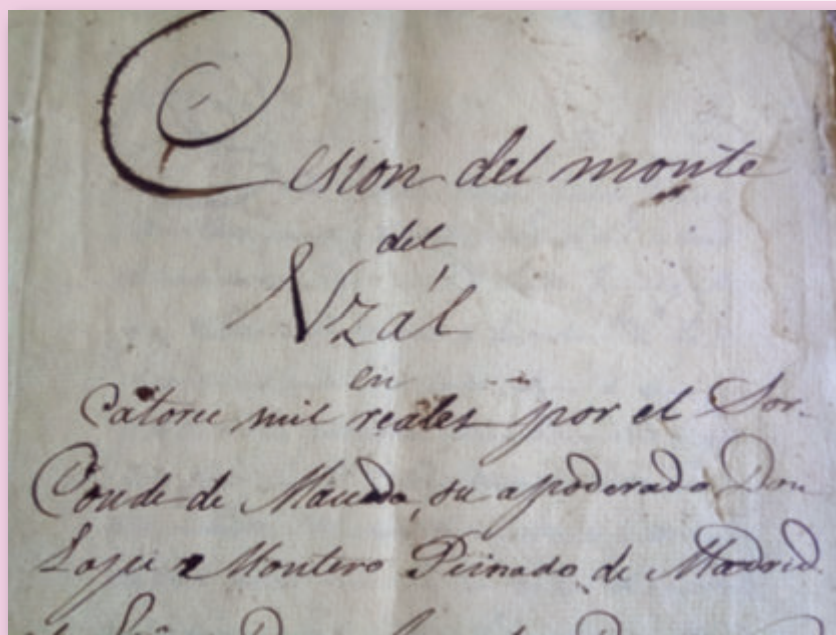 Cesion del monte
del
Uzál
en
Catorce mil reales por el Sor.
Conde de Maceda, su apoderado Don
Lope Montero Peinado de Madrid